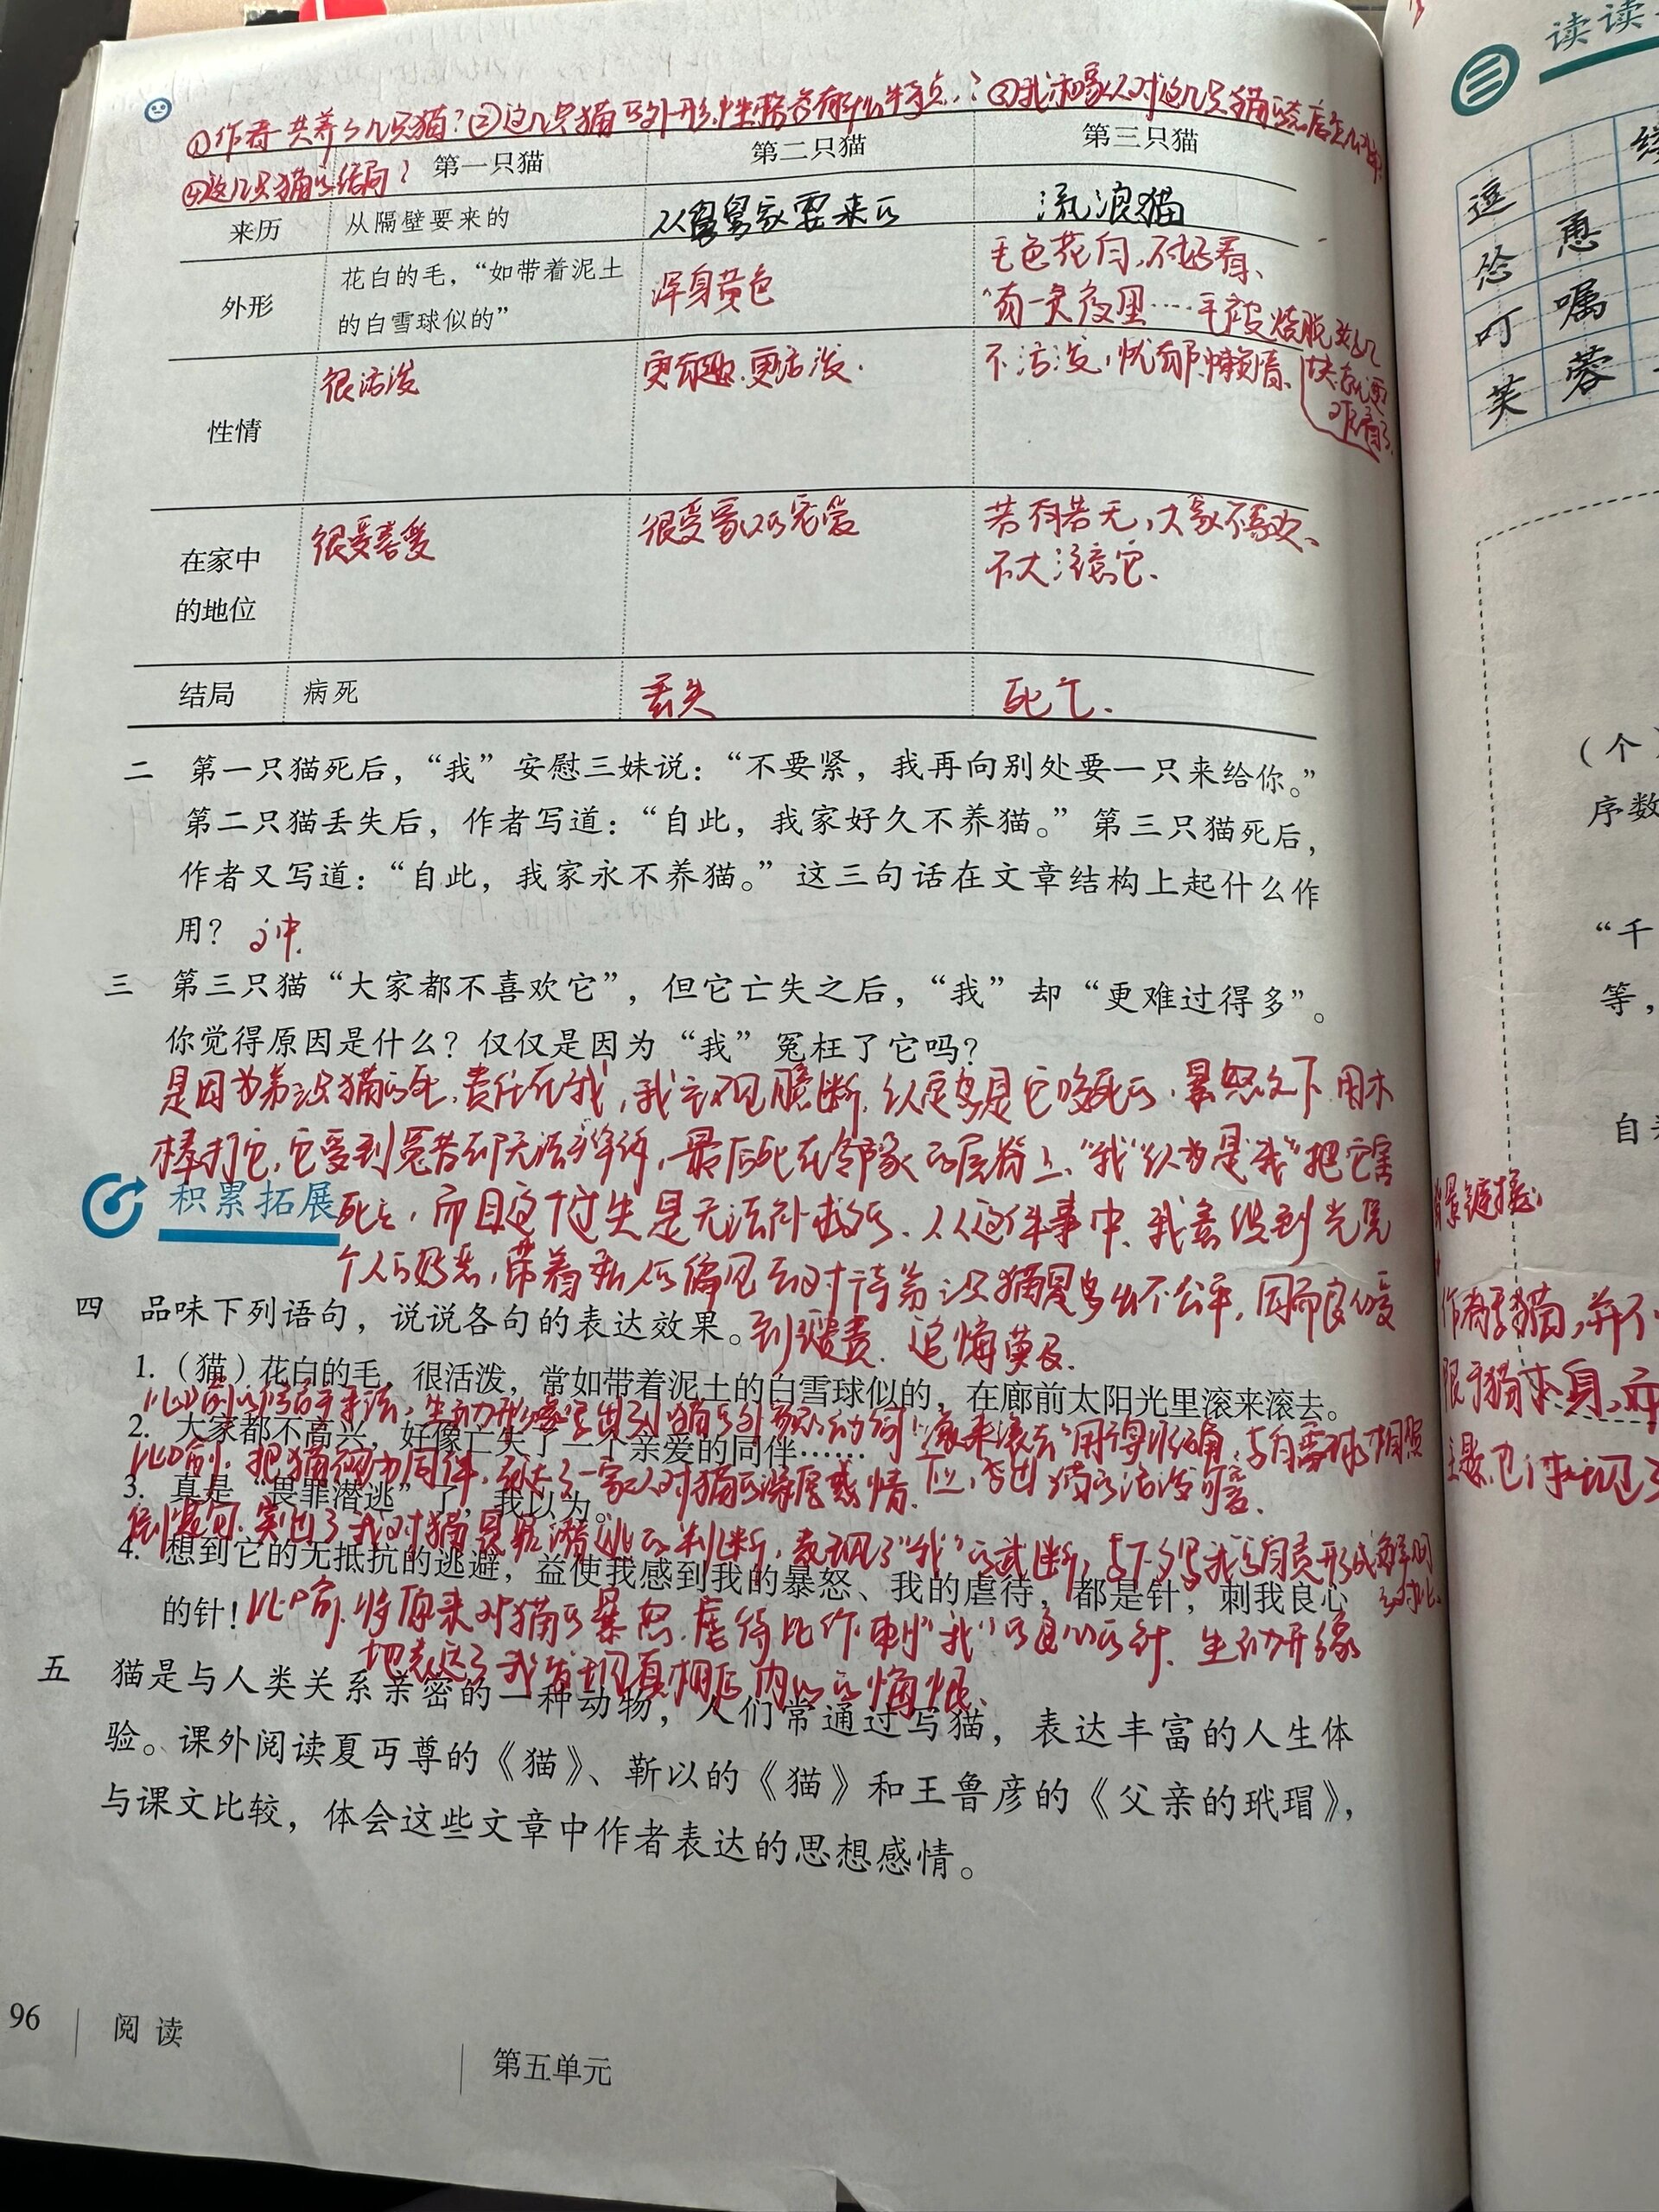 ①作者共养了几只猫?②这几只猫的外形、性格各有什么特点?③我和家人对这几只猫
第一只猫 第二只猫 第三只猫
④这几只猫的结局?
来历 从隔壁要来的 从舅舅家要来的 流浪猫
外形 花白的毛，“如带着泥土的白雪球似的” 浑身黄色 毛色花白,不好看、“有一天夜里……毛被烧脱好几块,就更难看了
性情 很活泼 更有趣、更活泼. 不活泼,忧郁、懒惰、
在家中的地位 很受喜爱 很受家人的宠爱 若有若无,大家不喜欢、不大注意它、
结局 病死 丢失 死亡.
二 第一只猫死后，“我”安慰三妹说：“不要紧，我再向别处要一只来给你。”
第二只猫丢失后，作者写道：“自此，我家好久不养猫。”第三只猫死后，
作者又写道：“自此，我家永不养猫。”这三句话在文章结构上起什么作
用？
三 第三只猫“大家都不喜欢它”，但它亡失之后，“我”却“更难过得多”。
你觉得原因是什么？仅仅是因为“我”冤枉了它吗？
是因为第三只猫的死,责任在我,我主观臆断,认定鸟是它咬死的,暴怒之下用木
棒打它,它受到冤苦却无法辩诉,最后死在邻家的屋脊上、“我”认为是“我”把它害
积累拓展
死的,而且这个过失是无法补救的、从这件事中、我意识到光凭
个人的好恶,带着私人的偏见去对待第三只猫是多么不公平,因而良心受
四 品味下列语句，说说各句的表达效果。
到谴责、追悔莫及.
1.（猫）花白的毛，很活泼，常如带着泥土的白雪球似的，在廊前太阳光里滚来滚去。
2. 大家都不高兴，好像亡失了一个亲爱的同伴……
比喻,把猫称为同伴,表达了一家人对猫的深厚感情.
3. 真是“畏罪潜逃”了，我以为。
倒装句.突出了我对猫畏罪潜逃的判断,表现了“我”的武断,与下文写我的自责形成鲜明的对比.
4. 想到它的无抵抗的逃避，益使我感到我的暴怒、我的虐待，都是针，刺我良心
的针！
比喻.将原来对猫的暴怒.虐待比作刺“我”的良心的针.生动形象
地表达了我发现真相后内心的悔恨、
五 猫是与人类关系亲密的一种动物，人们常通过写猫，表达丰富的人生体
验。课外阅读夏丏尊的《猫》、靳以的《猫》和王鲁彦的《父亲的玳瑁》，
与课文比较，体会这些文章中作者表达的思想感情。
96 阅读
第五单元
三 读读
逗
怂 恿
叮 嘱
芙 蓉
（个
序数
“千
等，
背景链接: